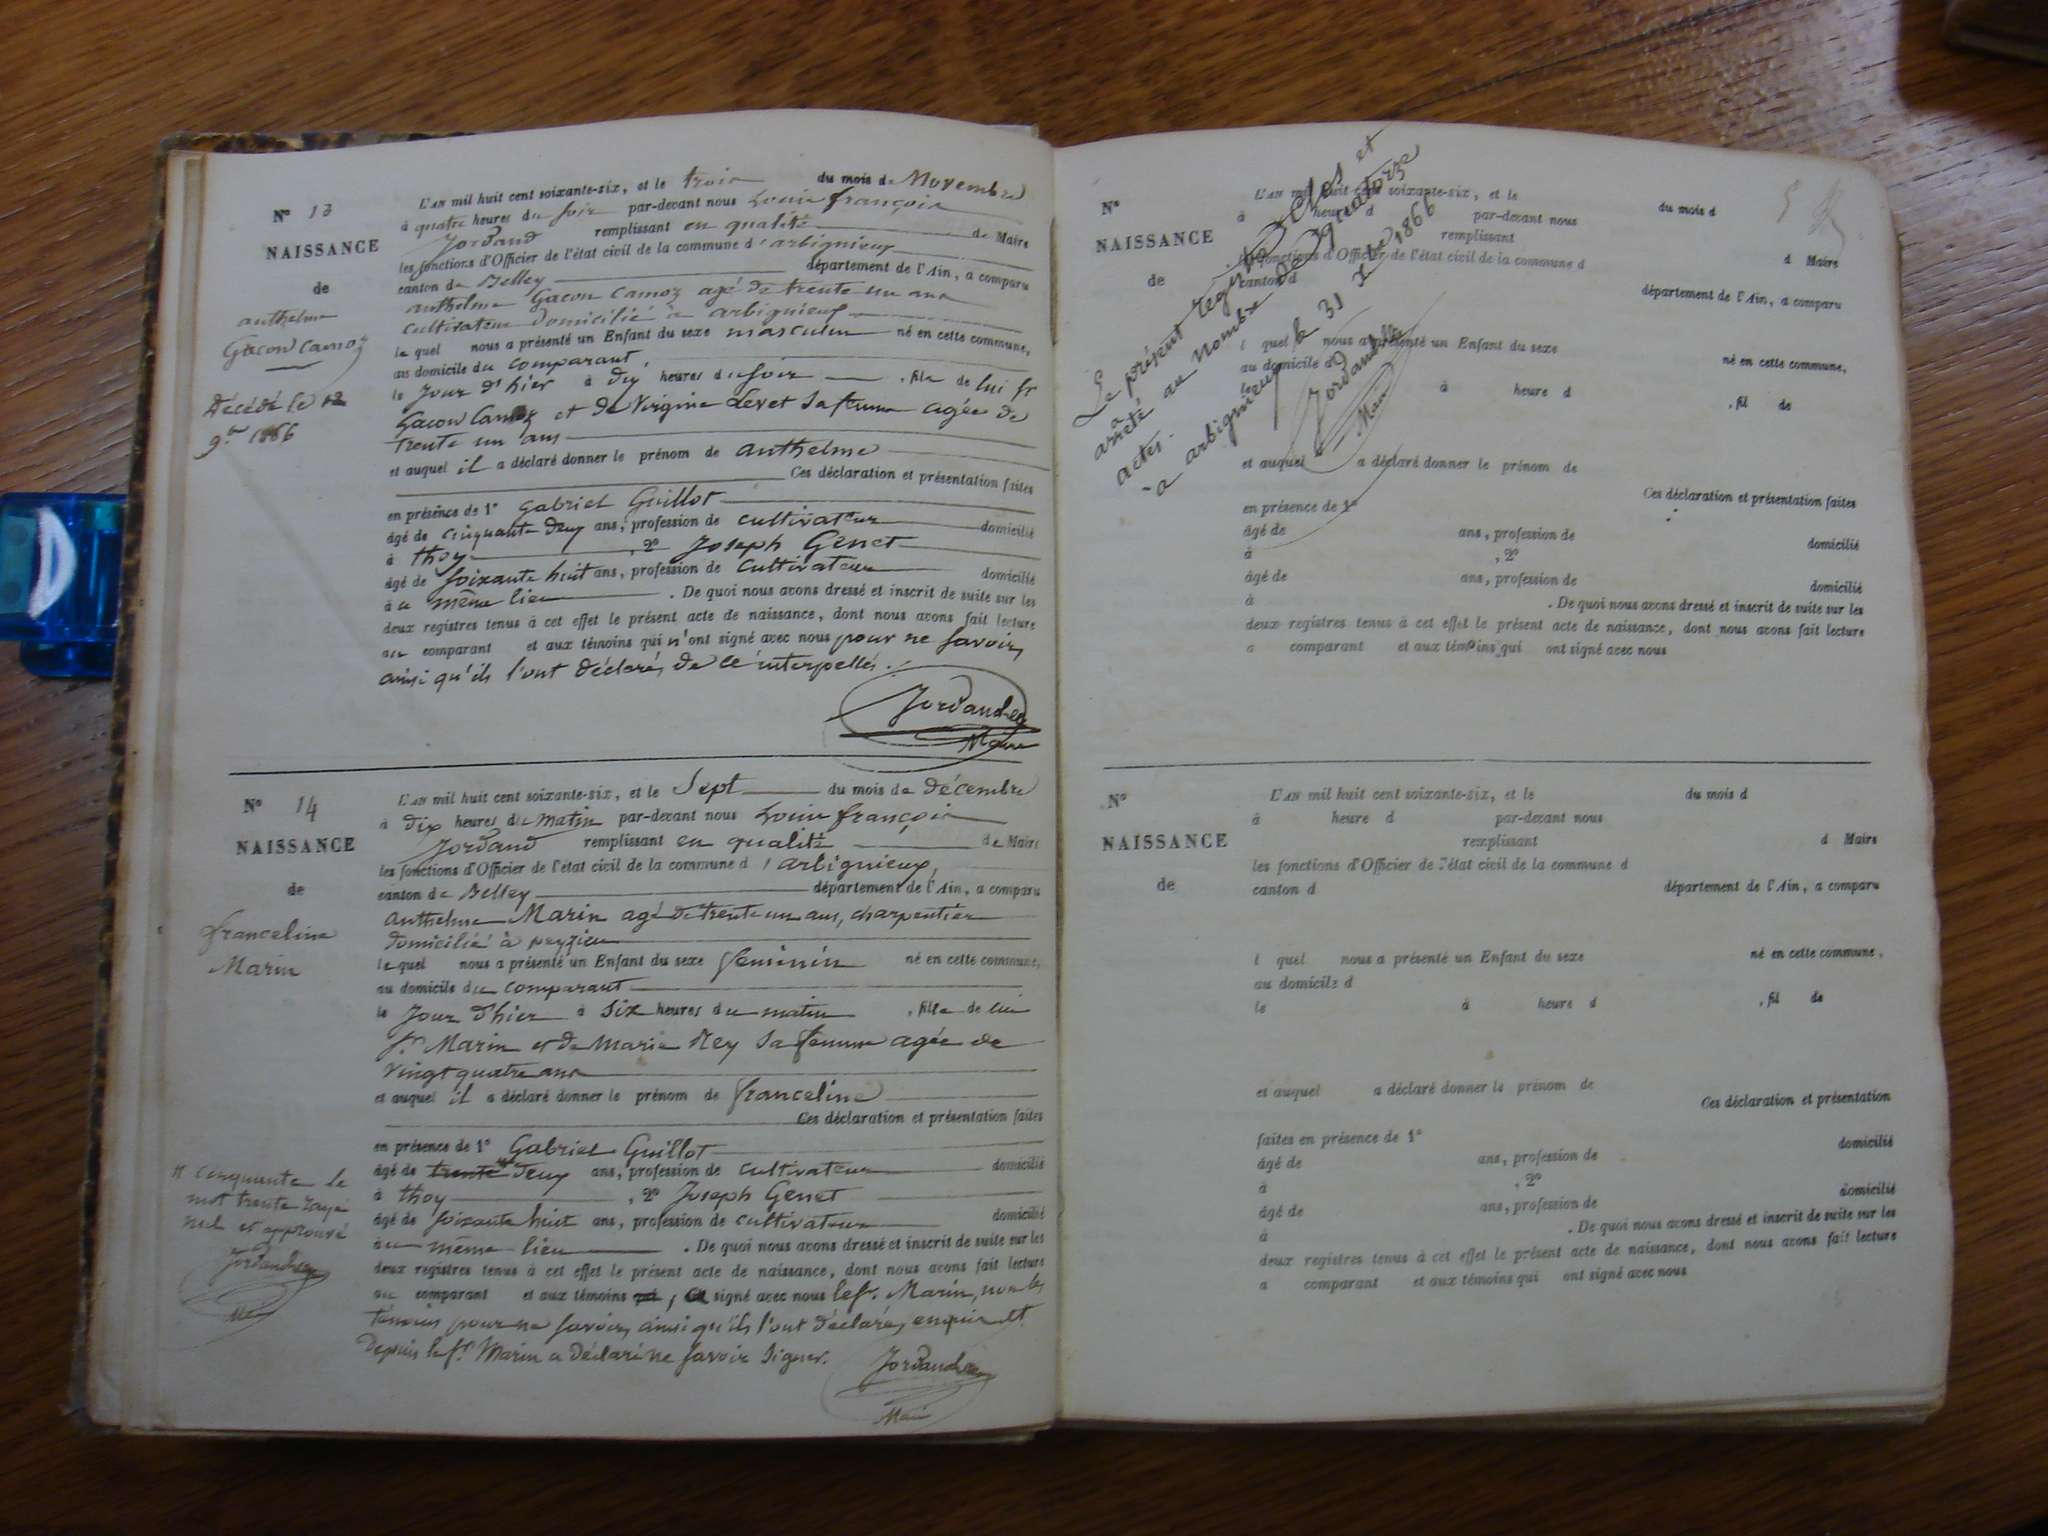 N° 13
NAISSANCE
de
anthelme
Gacon Camoz
Décédé le 12
9bre 1866
L'AN mil huit cent soixante-six, et le trois du mois de Novembre
à quatre heures du soir par-devant nous Louis françois
Jordand remplissant en qualité de Maire
les fonctions d'Officier de l'état civil de la commune d'arbignieux
canton de Belley département de l'Ain, a comparu
anthelme Gacon Camoz agé de trente un ans
cultivateur Domicilié à arbignieux
le quel nous a présenté un Enfant du sexe masculin né en cette commune,
au domicile du comparant
le Jour d'hier à dix heures du soir , fils de lui sr
Gacon Camoz et de Virginie Levet sa femme agée de
trente un ans
et auquel il a déclaré donner le prénom de anthelme
Ces déclaration et présentation faites
en présence de 1° Gabriel Guillot
âgé de cinquante deux ans, profession de cultivateur domicilié
à thoy , 2° Joseph Genet
âgé de soixante huit ans, profession de cultivateur domicilié
au même lieu . De quoi nous avons dressé et inscrit de suite sur les
deux registres tenus à cet effet le présent acte de naissance, dont nous avons fait lecture
au comparant et aux témoins qui n'ont signé avec nous pour ne savoir,
ainsi qu'ils l'ont déclaré, de ce interpellés.
Maire
N° 14
NAISSANCE
de
franceline
Marin
L'AN mil huit cent soixante-six, et le Sept du mois de décembre
à dix heures du matin par-devant nous Louis françois
Jordand remplissant en qualité de Maire
les fonctions d'Officier de l'état civil de la commune d'arbignieux,
canton de Belley département de l'Ain, a comparu
anthelme Marin agé de trente un ans, charpentier
domicilié à peyzieu
le quel nous a présenté un Enfant du sexe feminin né en cette commune,
au domicile du comparant
le Jour d'hier à six heures du matin , fille de lui
sr Marin et de Marie Rey sa femme agée de
vingt quatre ans
et auquel il a déclaré donner le prénom de franceline
Ces déclaration et présentation faites
en présence de 1° Gabriel Guillot
âgé de trente deux ans, profession de cultivateur domicilié
à thoy , 2° Joseph Genet
âgé de soixante huit ans, profession de cultivateur domicilié
au même lieu . De quoi nous avons dressé et inscrit de suite sur les
deux registres tenus à cet effet le présent acte de naissance, dont nous avons fait lecture
au comparant et aux témoins signé avec nous le sr. Marin, non les
témoins pour ne savoir, ainsi qu'ils l'ont déclaré, enquis et
Depuis le sr. Marin a déclaré ne savoir signer.
Maire
cinquante le
mot trente rayé
nul et approuvé
N°
NAISSANCE
de
L'AN mil huit cent soixante-six, et le du mois d
à heure d par-devant nous
remplissant d Maire
les fonctions d'Officier de l'état civil de la commune d
canton d département de l'Ain, a comparu
l quel nous a présenté un Enfant du sexe né en cette commune,
au domicile d
le à heure d , fil de
et auquel a déclaré donner le prénom de
Ces déclaration et présentation faites
en présence de 1°
âgé de ans, profession de domicilié
à , 2°
âgé de ans, profession de domicilié
à . De quoi nous avons dressé et inscrit de suite sur les
deux registres tenus à cet effet le présent acte de naissance, dont nous avons fait lecture
a comparant et aux témoins qui ont signé avec nous
Le présent registre clos et
arrêté au nombre de quatorze
actes.
a arbignieux le 31 Xbre 1866
Jordand
Maire
N°
NAISSANCE
de
L'AN mil huit cent soixante-six, et le du mois d
à heure d par-devant nous
remplissant d Maire
les fonctions d'Officier de l'état civil de la commune d
canton d département de l'Ain, a comparu
l quel nous a présenté un Enfant du sexe né en cette commune,
au domicile d
le à heure d , fil de
et auquel a déclaré donner le prénom de
Ces déclaration et présentation
faites en présence de 1°
âgé de ans, profession de domicilié
à , 2°
âgé de ans, profession de domicilié
à . De quoi nous avons dressé et inscrit de suite sur les
deux registres tenus à cet effet le présent acte de naissance, dont nous avons fait lecture
a comparant et aux témoins qui ont signé avec nous